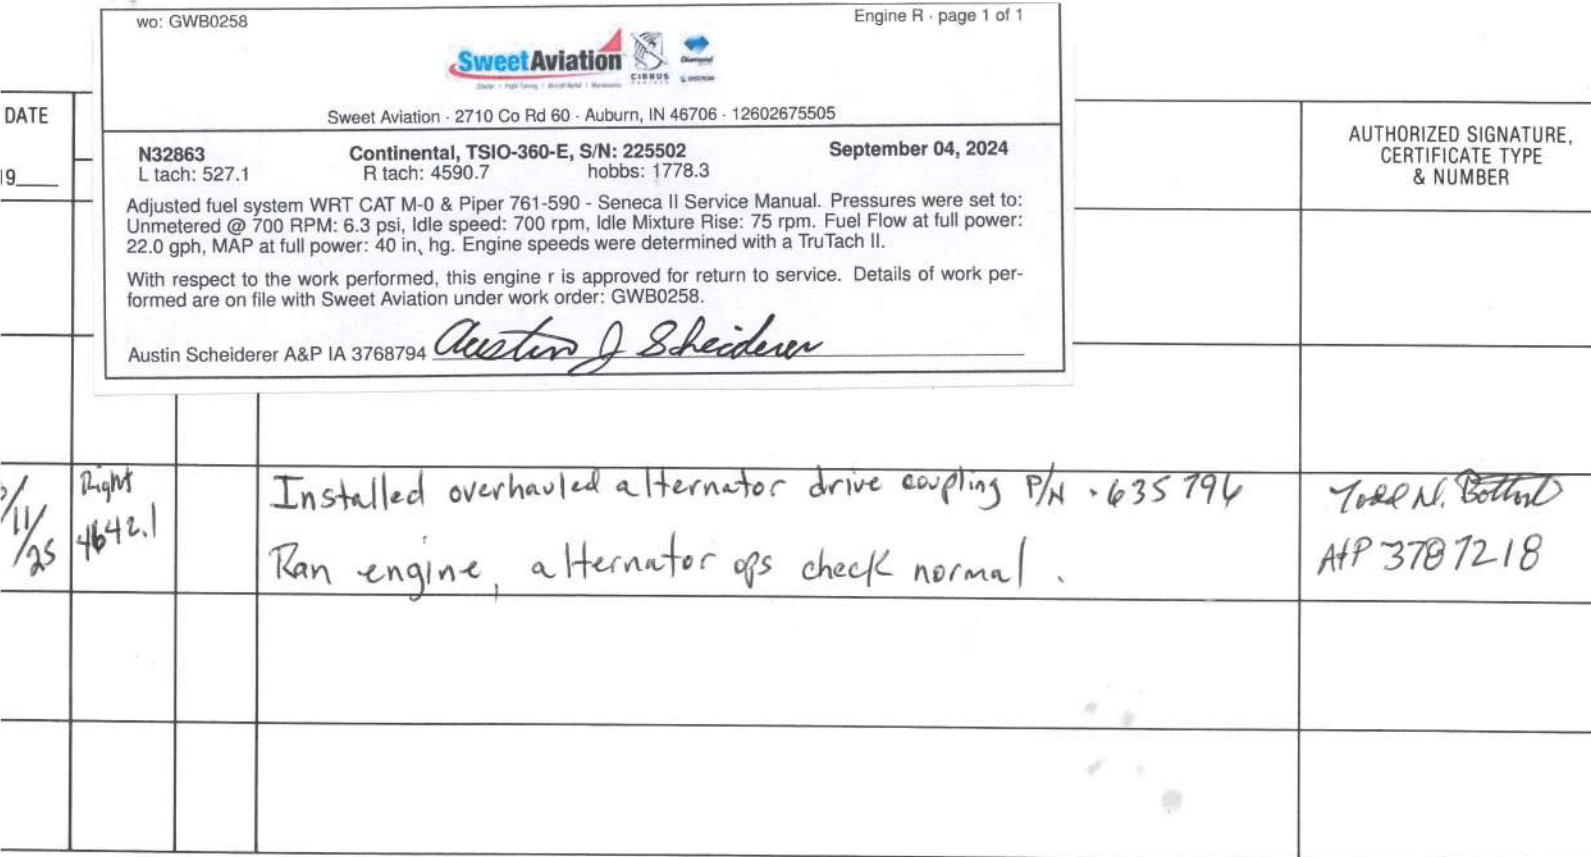 wo: GWB0258
Engine R · page 1 of 1
Sweet Aviation
CIRRUS
Diamond
Sweet Aviation · 2710 Co Rd 60 · Auburn, IN 46706 · 12602675505
DATE
19
AUTHORIZED SIGNATURE,
CERTIFICATE TYPE
& NUMBER
N32863 Continental, TSIO-360-E, S/N: 225502 September 04, 2024
L tach: 527.1 R tach: 4590.7 hobbs: 1778.3
Adjusted fuel system WRT CAT M-0 & Piper 761-590 - Seneca II Service Manual. Pressures were set to:
Unmetered @ 700 RPM: 6.3 psi, Idle speed: 700 rpm, Idle Mixture Rise: 75 rpm. Fuel Flow at full power:
22.0 gph, MAP at full power: 40 in, hg. Engine speeds were determined with a TruTach II.
With respect to the work performed, this engine r is approved for return to service. Details of work per-
formed are on file with Sweet Aviation under work order: GWB0258.
Austin Scheiderer A&P IA 3768794 Austin J Scheiderer
/11/25 Right 4642.1
Installed overhauled alternator drive coupling P/N · 635796
Ran engine, alternator ops check normal.
Todd N.
A+P 3787218